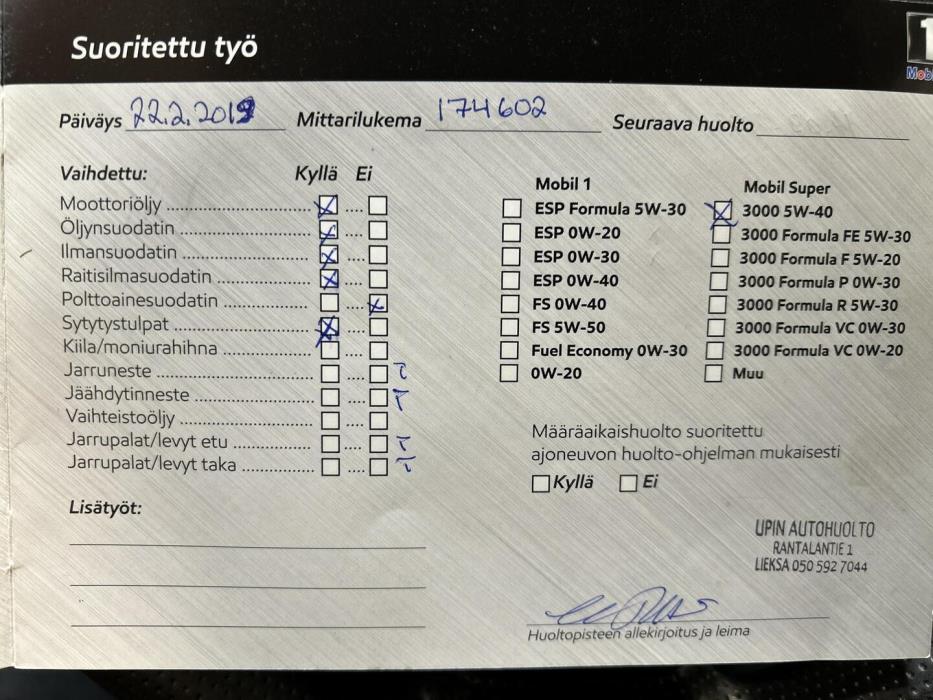 Suoritettu työ
1
Mobil
Päiväys 22.2.2019 Mittarilukema 174602 Seuraava huolto
Vaihdettu: Kyllä Ei
Moottoriöljy
Öljynsuodatin
Ilmansuodatin
Raitisilmasuodatin
Polttoainesuodatin
Sytytystulpat
Kiila/moniurahihna
Jarruneste T
Jäähdytinneste T
Vaihteistoöljy
Jarrupalat/levyt etu T
Jarrupalat/levyt taka T
Lisätyöt:
Mobil 1
ESP Formula 5W-30
ESP 0W-20
ESP 0W-30
ESP 0W-40
FS 0W-40
FS 5W-50
Fuel Economy 0W-30
0W-20
Mobil Super
3000 5W-40
3000 Formula FE 5W-30
3000 Formula F 5W-20
3000 Formula P 0W-30
3000 Formula R 5W-30
3000 Formula VC 0W-30
3000 Formula VC 0W-20
Muu
Määräaikaishuolto suoritettu
ajoneuvon huolto-ohjelman mukaisesti
Kyllä Ei
UPIN AUTOHUOLTO
RANTALANTIE 1
LIEKSA 050 592 7044
Huoltopisteen allekirjoitus ja leima